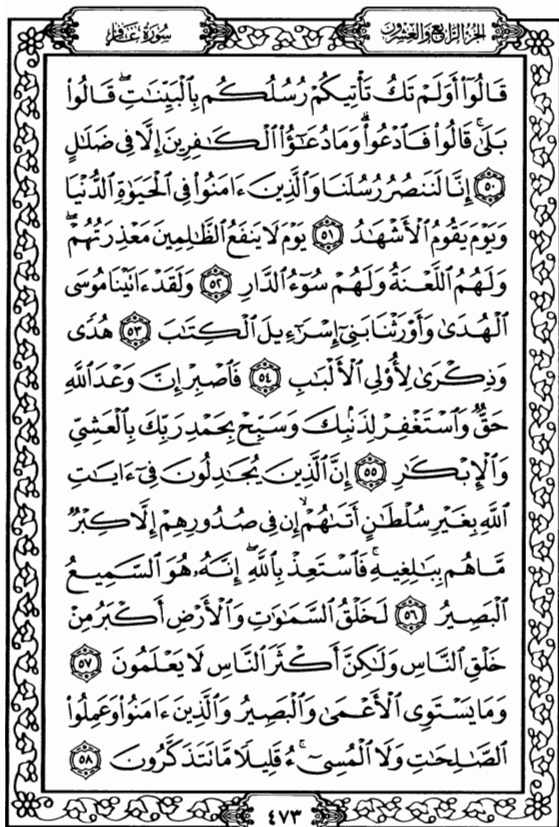 سُورَةُ غَافِرٍ
الجُزءُ الرَّابِعُ وَالعِشْرُونَ
قَالُوٓا۟ أَوَلَمْ تَكُ تَأْتِيكُمْ رُسُلُكُم بِٱلْبَيِّنَـٰتِ ۖ قَالُوا۟
بَلَىٰ ۚ قَالُوا۟ فَٱدْعُوا۟ ۗ وَمَا دُعَـٰٓؤُا۟ ٱلْكَـٰفِرِينَ إِلَّا فِى ضَلَـٰلٍ
٥٠ إِنَّا لَنَنصُرُ رُسُلَنَا وَٱلَّذِينَ ءَامَنُوا۟ فِى ٱلْحَيَوٰةِ ٱلدُّنْيَا
وَيَوْمَ يَقُومُ ٱلْأَشْهَـٰدُ ٥١ يَوْمَ لَا يَنفَعُ ٱلظَّـٰلِمِينَ مَعْذِرَتُهُمْ ۖ
وَلَهُمُ ٱللَّعْنَةُ وَلَهُمْ سُوٓءُ ٱلدَّارِ ٥٢ وَلَقَدْ ءَاتَيْنَا مُوسَى
ٱلْهُدَىٰ وَأَوْرَثْنَا بَنِىٓ إِسْرَٰٓءِيلَ ٱلْكِتَـٰبَ ٥٣ هُدًى
وَذِكْرَىٰ لِأُو۟لِى ٱلْأَلْبَـٰبِ ٥٤ فَٱصْبِرْ إِنَّ وَعْدَ ٱللَّهِ
حَقٌّ وَٱسْتَغْفِرْ لِذَنۢبِكَ وَسَبِّحْ بِحَمْدِ رَبِّكَ بِٱلْعَشِىِّ
وَٱلْإِبْكَـٰرِ ٥٥ إِنَّ ٱلَّذِينَ يُجَـٰدِلُونَ فِىٓ ءَايَـٰتِ
ٱللَّهِ بِغَيْرِ سُلْطَـٰنٍ أَتَىٰهُمْ ۙ إِن فِى صُدُورِهِمْ إِلَّا كِبْرٌ
مَّا هُم بِبَـٰلِغِيهِ ۚ فَٱسْتَعِذْ بِٱللَّهِ ۖ إِنَّهُۥ هُوَ ٱلسَّمِيعُ
ٱلْبَصِيرُ ٥٦ لَخَلْقُ ٱلسَّمَـٰوَٰتِ وَٱلْأَرْضِ أَكْبَرُ مِنْ
خَلْقِ ٱلنَّاسِ وَلَـٰكِنَّ أَكْثَرَ ٱلنَّاسِ لَا يَعْلَمُونَ ٥٧
وَمَا يَسْتَوِى ٱلْأَعْمَىٰ وَٱلْبَصِيرُ وَٱلَّذِينَ ءَامَنُوا۟ وَعَمِلُوا۟
ٱلصَّـٰلِحَـٰتِ وَلَا ٱلْمُسِىٓءُ ۚ قَلِيلًا مَّا تَتَذَكَّرُونَ ٥٨
٤٧٣